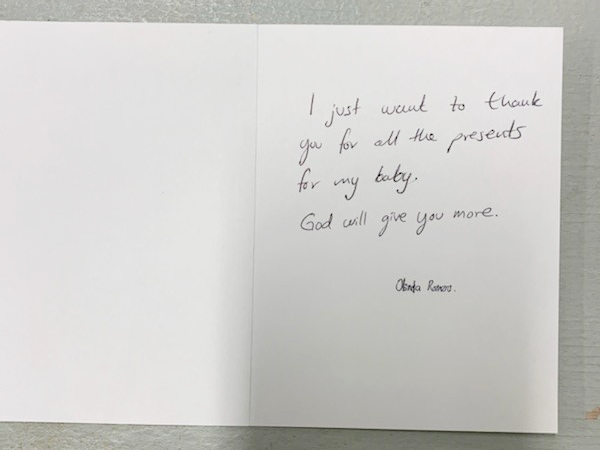 I just want to thank
you for all the presents
for my baby.
God will give you more.
Olinda Ramos.